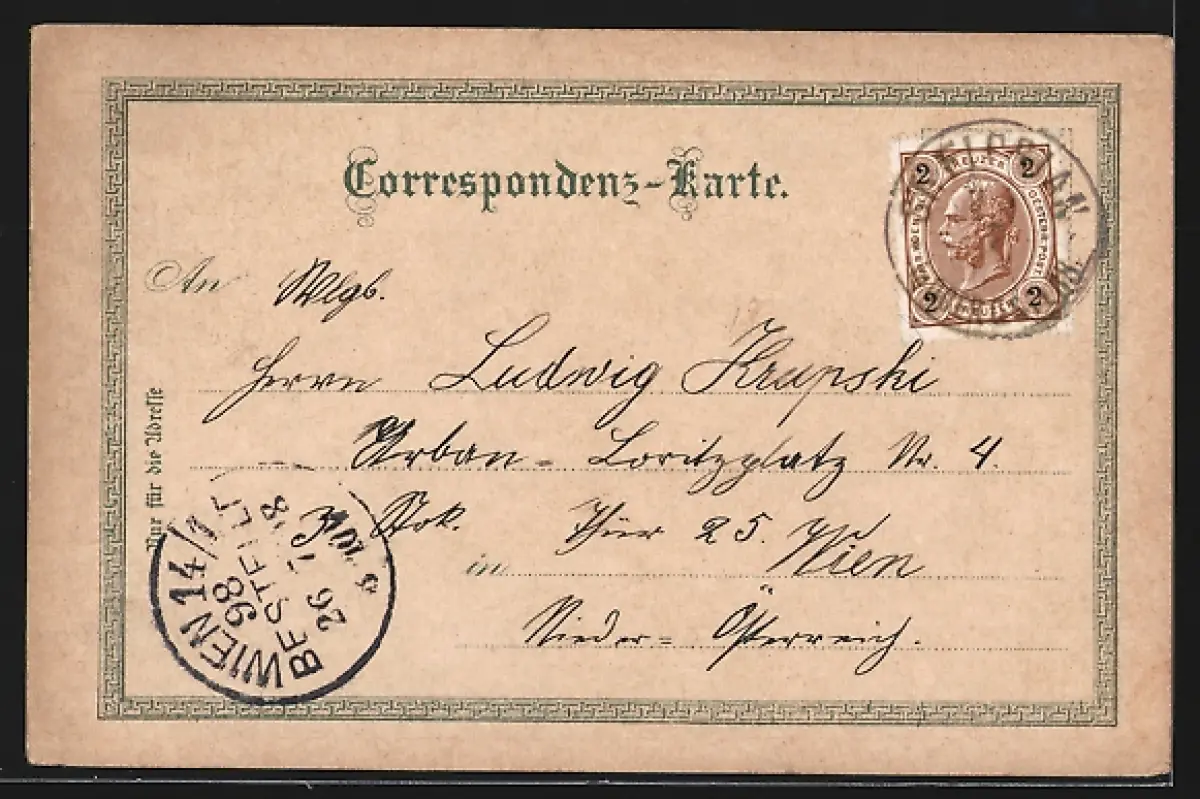 Correspondenz-Karte.
2 KREUZER 2
2 KREUZER 2
An Wlgb.
Herrn Ludwig Krupski
Urban-Loritzplatz Nr. 4.
3. Stok. Thür 25.
in Wien
Nieder-Österreich.
Nur für die Adresse
WIEN 14/1
BESTELLT
26 98